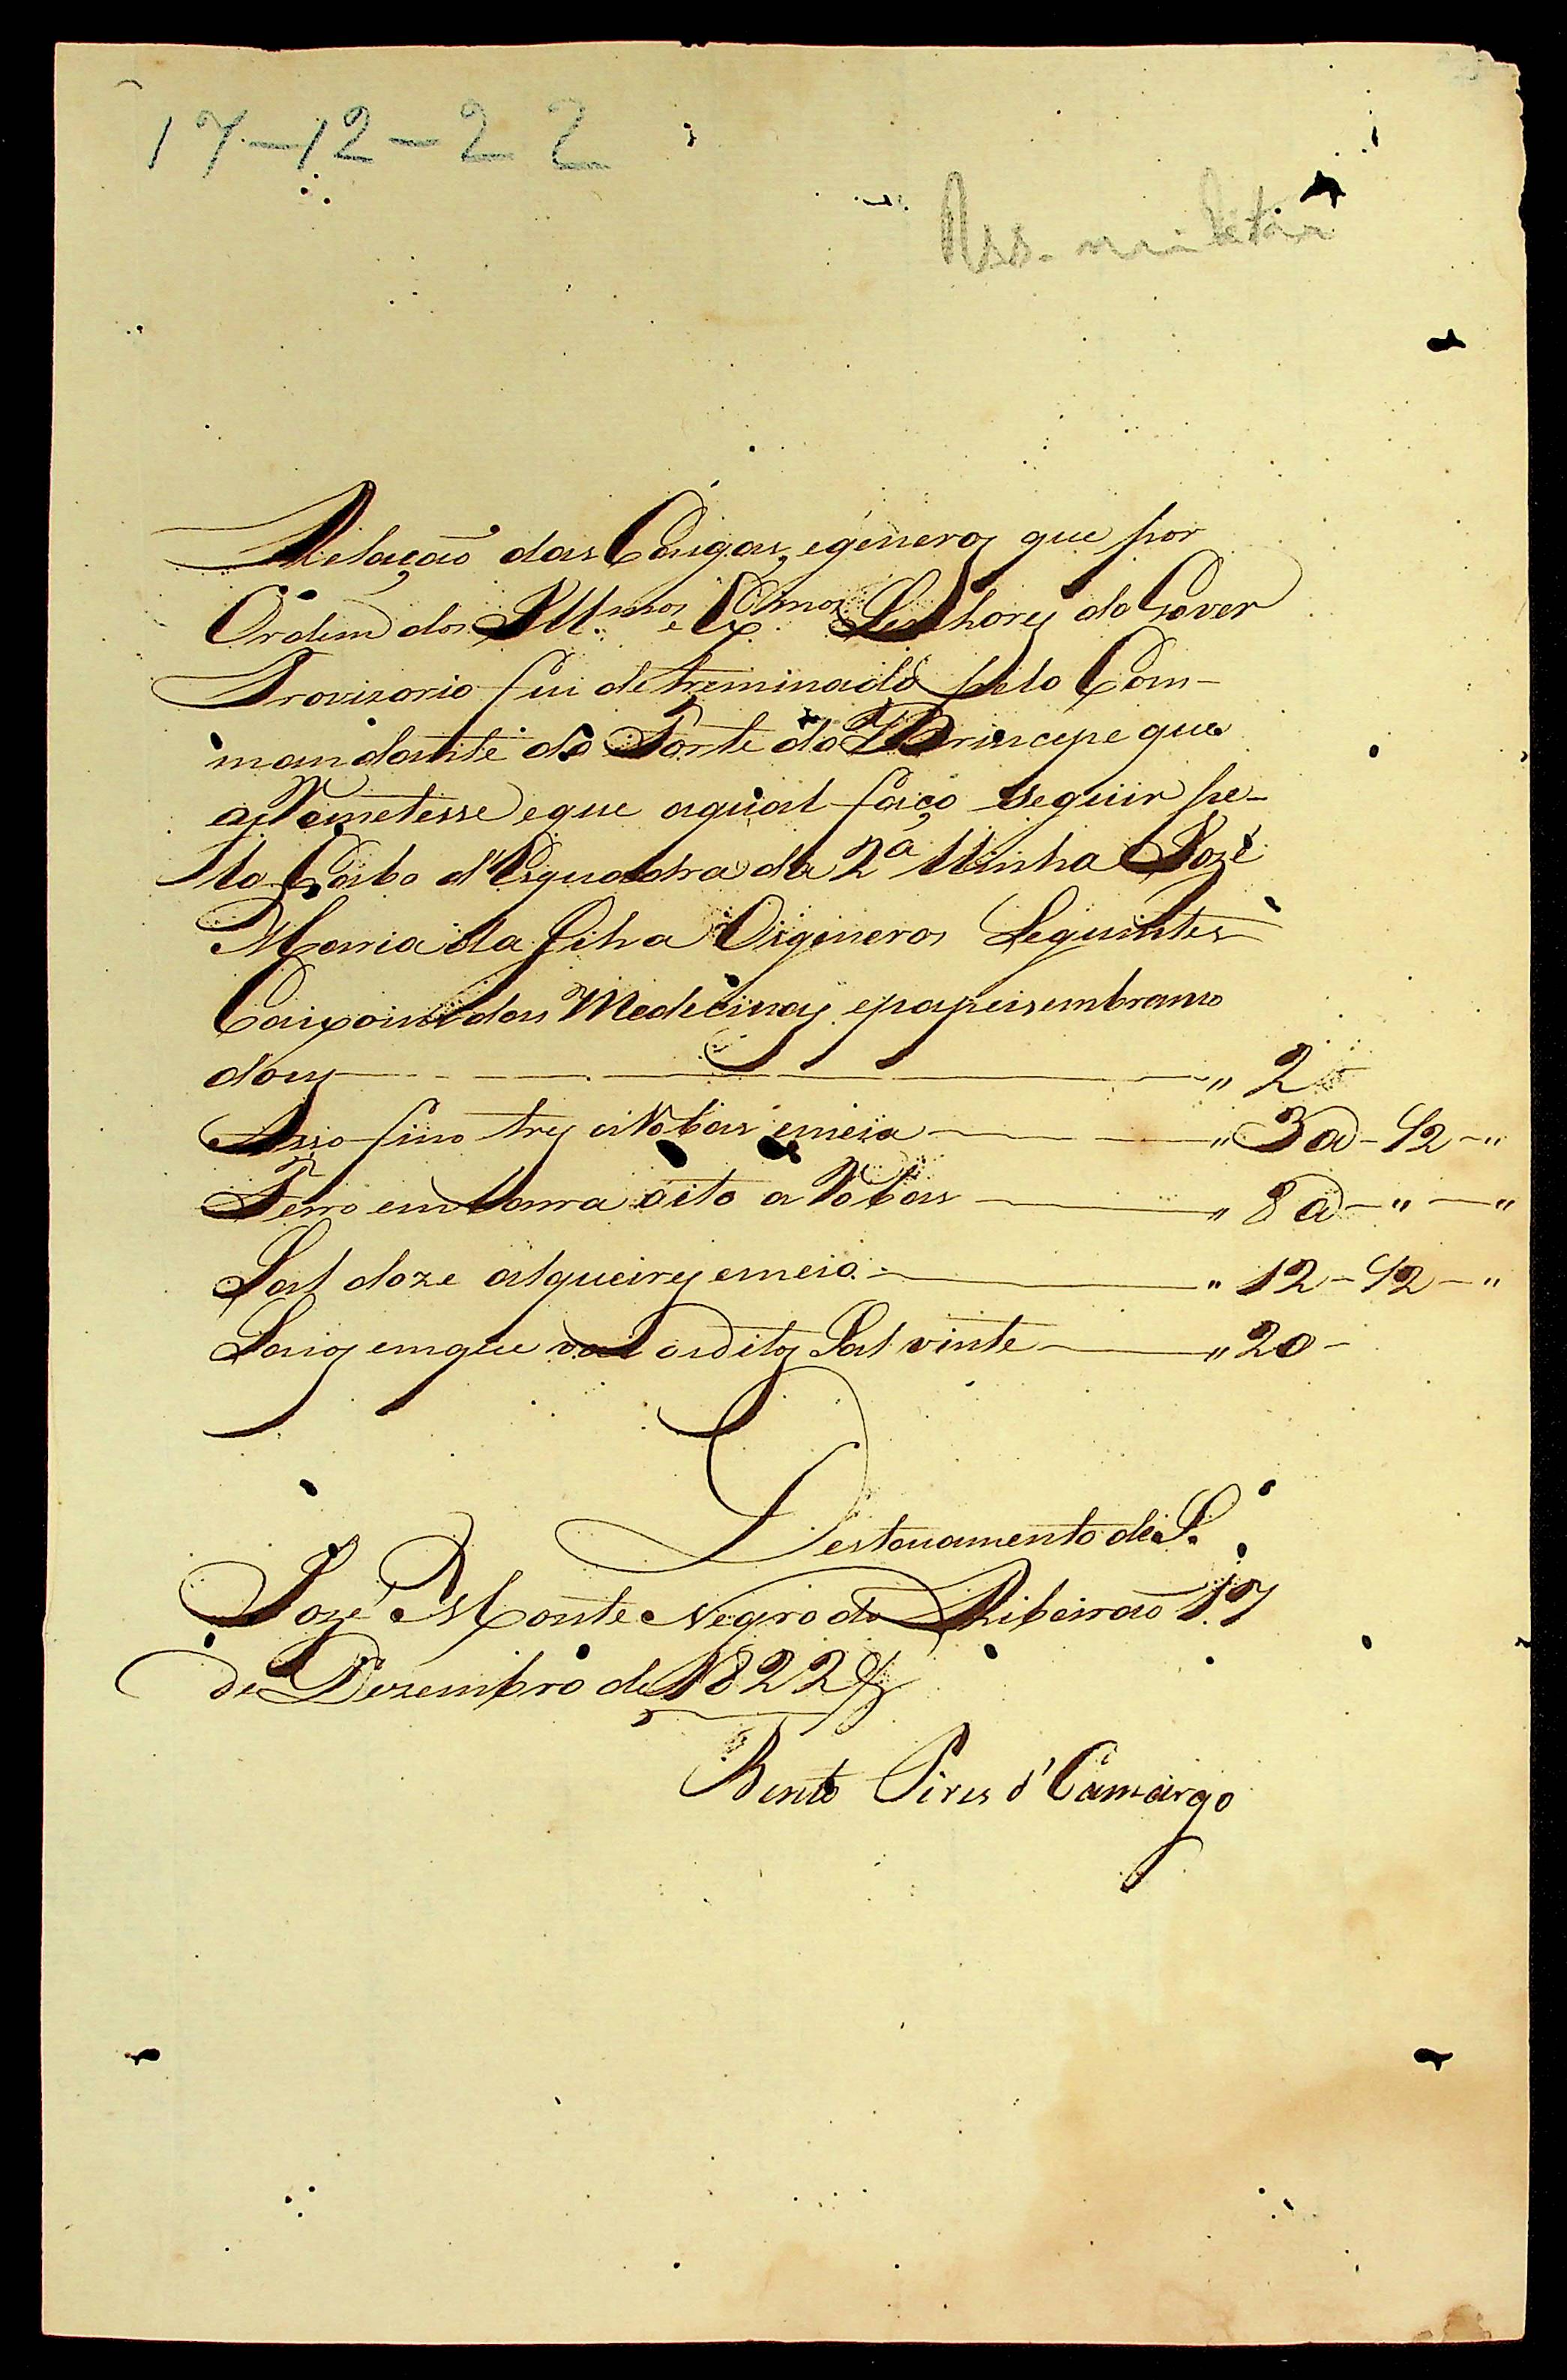 17-12-22
Ass. militar
Relação das Cargas, egeneros que por
Ordem dos Illmos. e Exmos. Senhores do Gover
Provizorio fui detreminado pelo Com-
mandante do Forte do Principe que
as Remetesse eque aqual faço seguir pe-
llo Cabo d'Esquadra da 2ª Llinha Jozé
Maria da Silva Osgeneros Seguintes
Caixoins das Medecinas epapeis embrama
dos " 2
Asso fino tres aRobas emeia " 3@-1/2-"
Ferro em barra oito aRobas " 8@-"-"
Sal doze alqueires emeio " 12-1/2-"
Sacos emque vai os ditos Sal vinte " 20-
Destacamento de S.
Jozé Monte Negro do Ribeirão 17
de Dezembro de 1822
Bento Pires d'Camargo